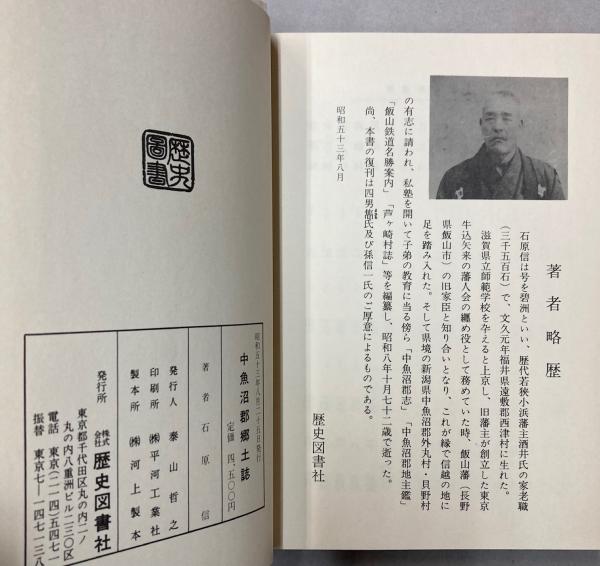 著者略歴
石原信は号を碧洲といい、歴代若狭小浜藩主酒井氏の家老職
(三千五百石)で、文久元年福井県遠敷郡西津村に生れた。
滋賀県立師範学校を卒えると上京し、旧藩主が創立した東京
牛込矢来の藩人会の纏め役として務めていた時、飯山藩(長野
県飯山市)の旧家臣と知り合いとなり、これが縁で信越の地に
足を踏み入れた。そして県境の新潟県中魚沼郡外丸村・貝野村
の有志に請われ、私塾を開いて子弟の教育に当る傍ら「中魚沼郡志」「中魚沼郡地主鑑」
「飯山鉄道名勝案内」「芦ヶ崎村誌」等を編纂し、昭和八年十月七十二歳で逝った。
尚、本書の復刊は四男氏及び孫信一氏のご厚意によるものである。
昭和五十三年八月
歴史図書社
歴史
図書
昭和五十三年八月二十五日発行
中魚沼郡郷土誌
定価 四、五〇〇円
著者 石原 信
発行人 泰山哲之
印刷所 ㈱平河工業社
製本所 ㈱河上製本
発行所 株式会社 歴史図書社
東京都千代田区丸の内二ノ
丸の内八重洲ビル二三〇区
電話 東京(二一四)五四七一
振替 東京七—一四七一三八